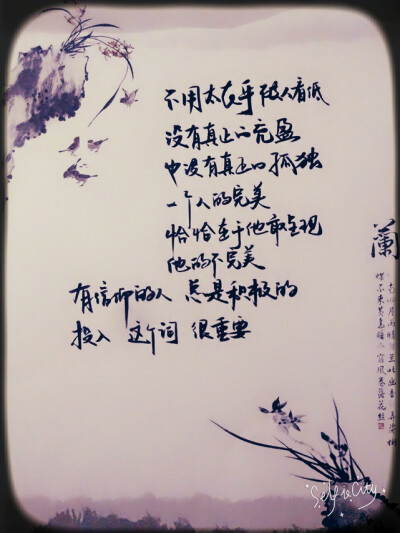 不用太在乎被人看低
没有真正的充盈
也没有真正的孤独
一个人的完美
恰恰在于他敢呈现
他的不完美
有信仰的人 总是积极的
投入 这个词 很重要
蘭
SelfieCity